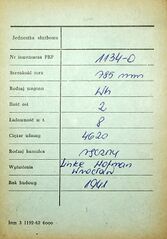 Jednostka służbowa
Nr inwentarza PKP 1134-0
Szerokość toru 785 mm
Rodzaj wagonu Wh
Ilość osi 2
Ładowność w t. 8
Ciężar własny 4620
Rodzaj hamulca ręczny
Wytwórnia Linke Hofman
Wrocław
Rok budowy 1941